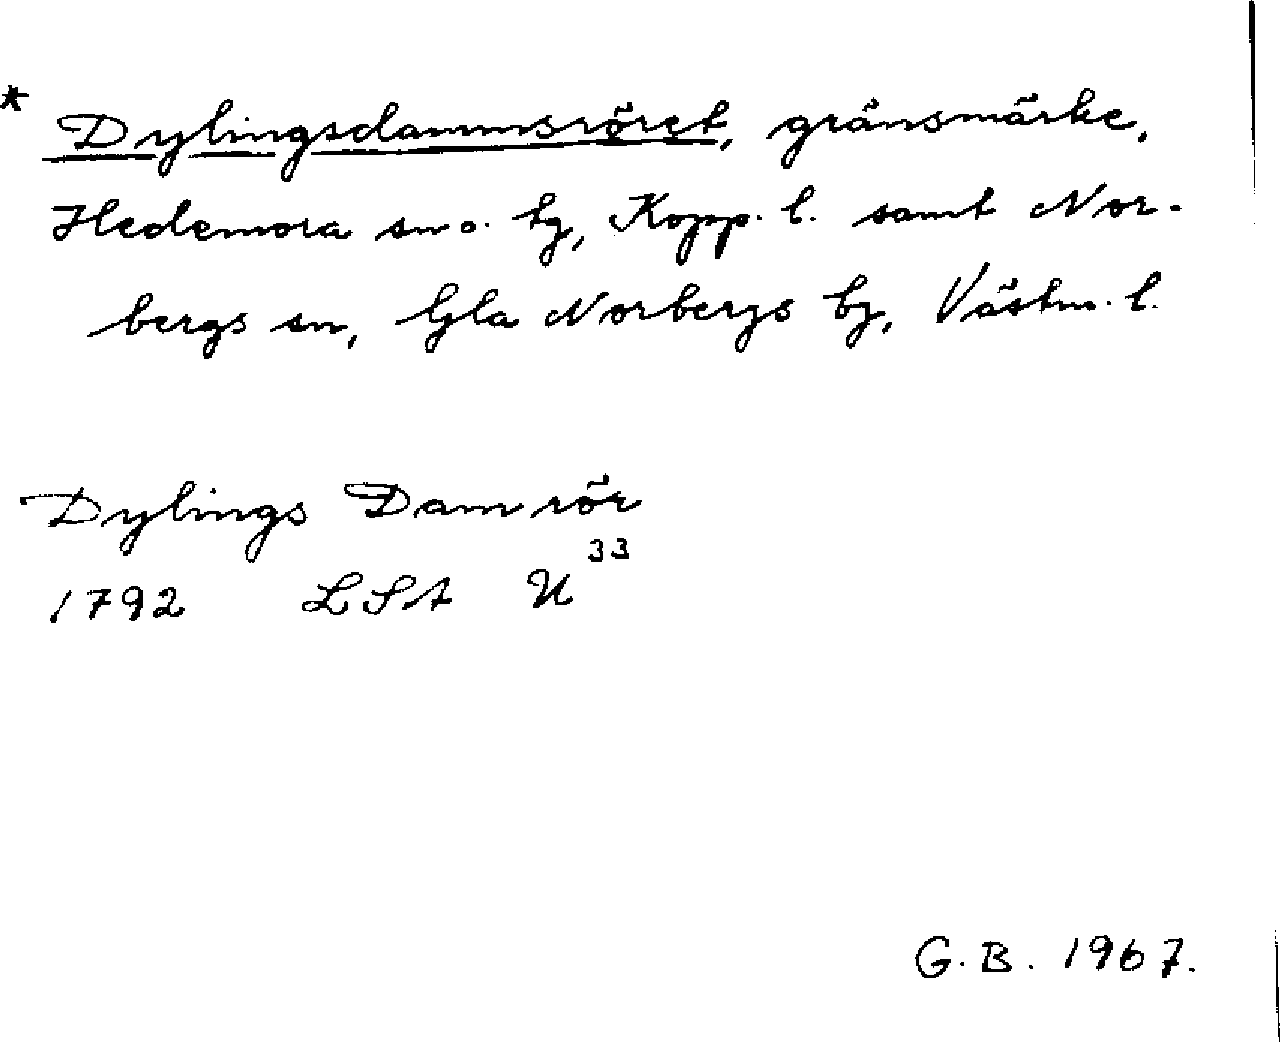 * Dylingsdammsröret, gränsmärke,
Hedemora sn o. tg, Kopp. l. samt Nor-
bergs sn, Gla Norbergs bg, Västm. l.
Dylings Dam rör
1792 LSA U³³
G. B. 1967.